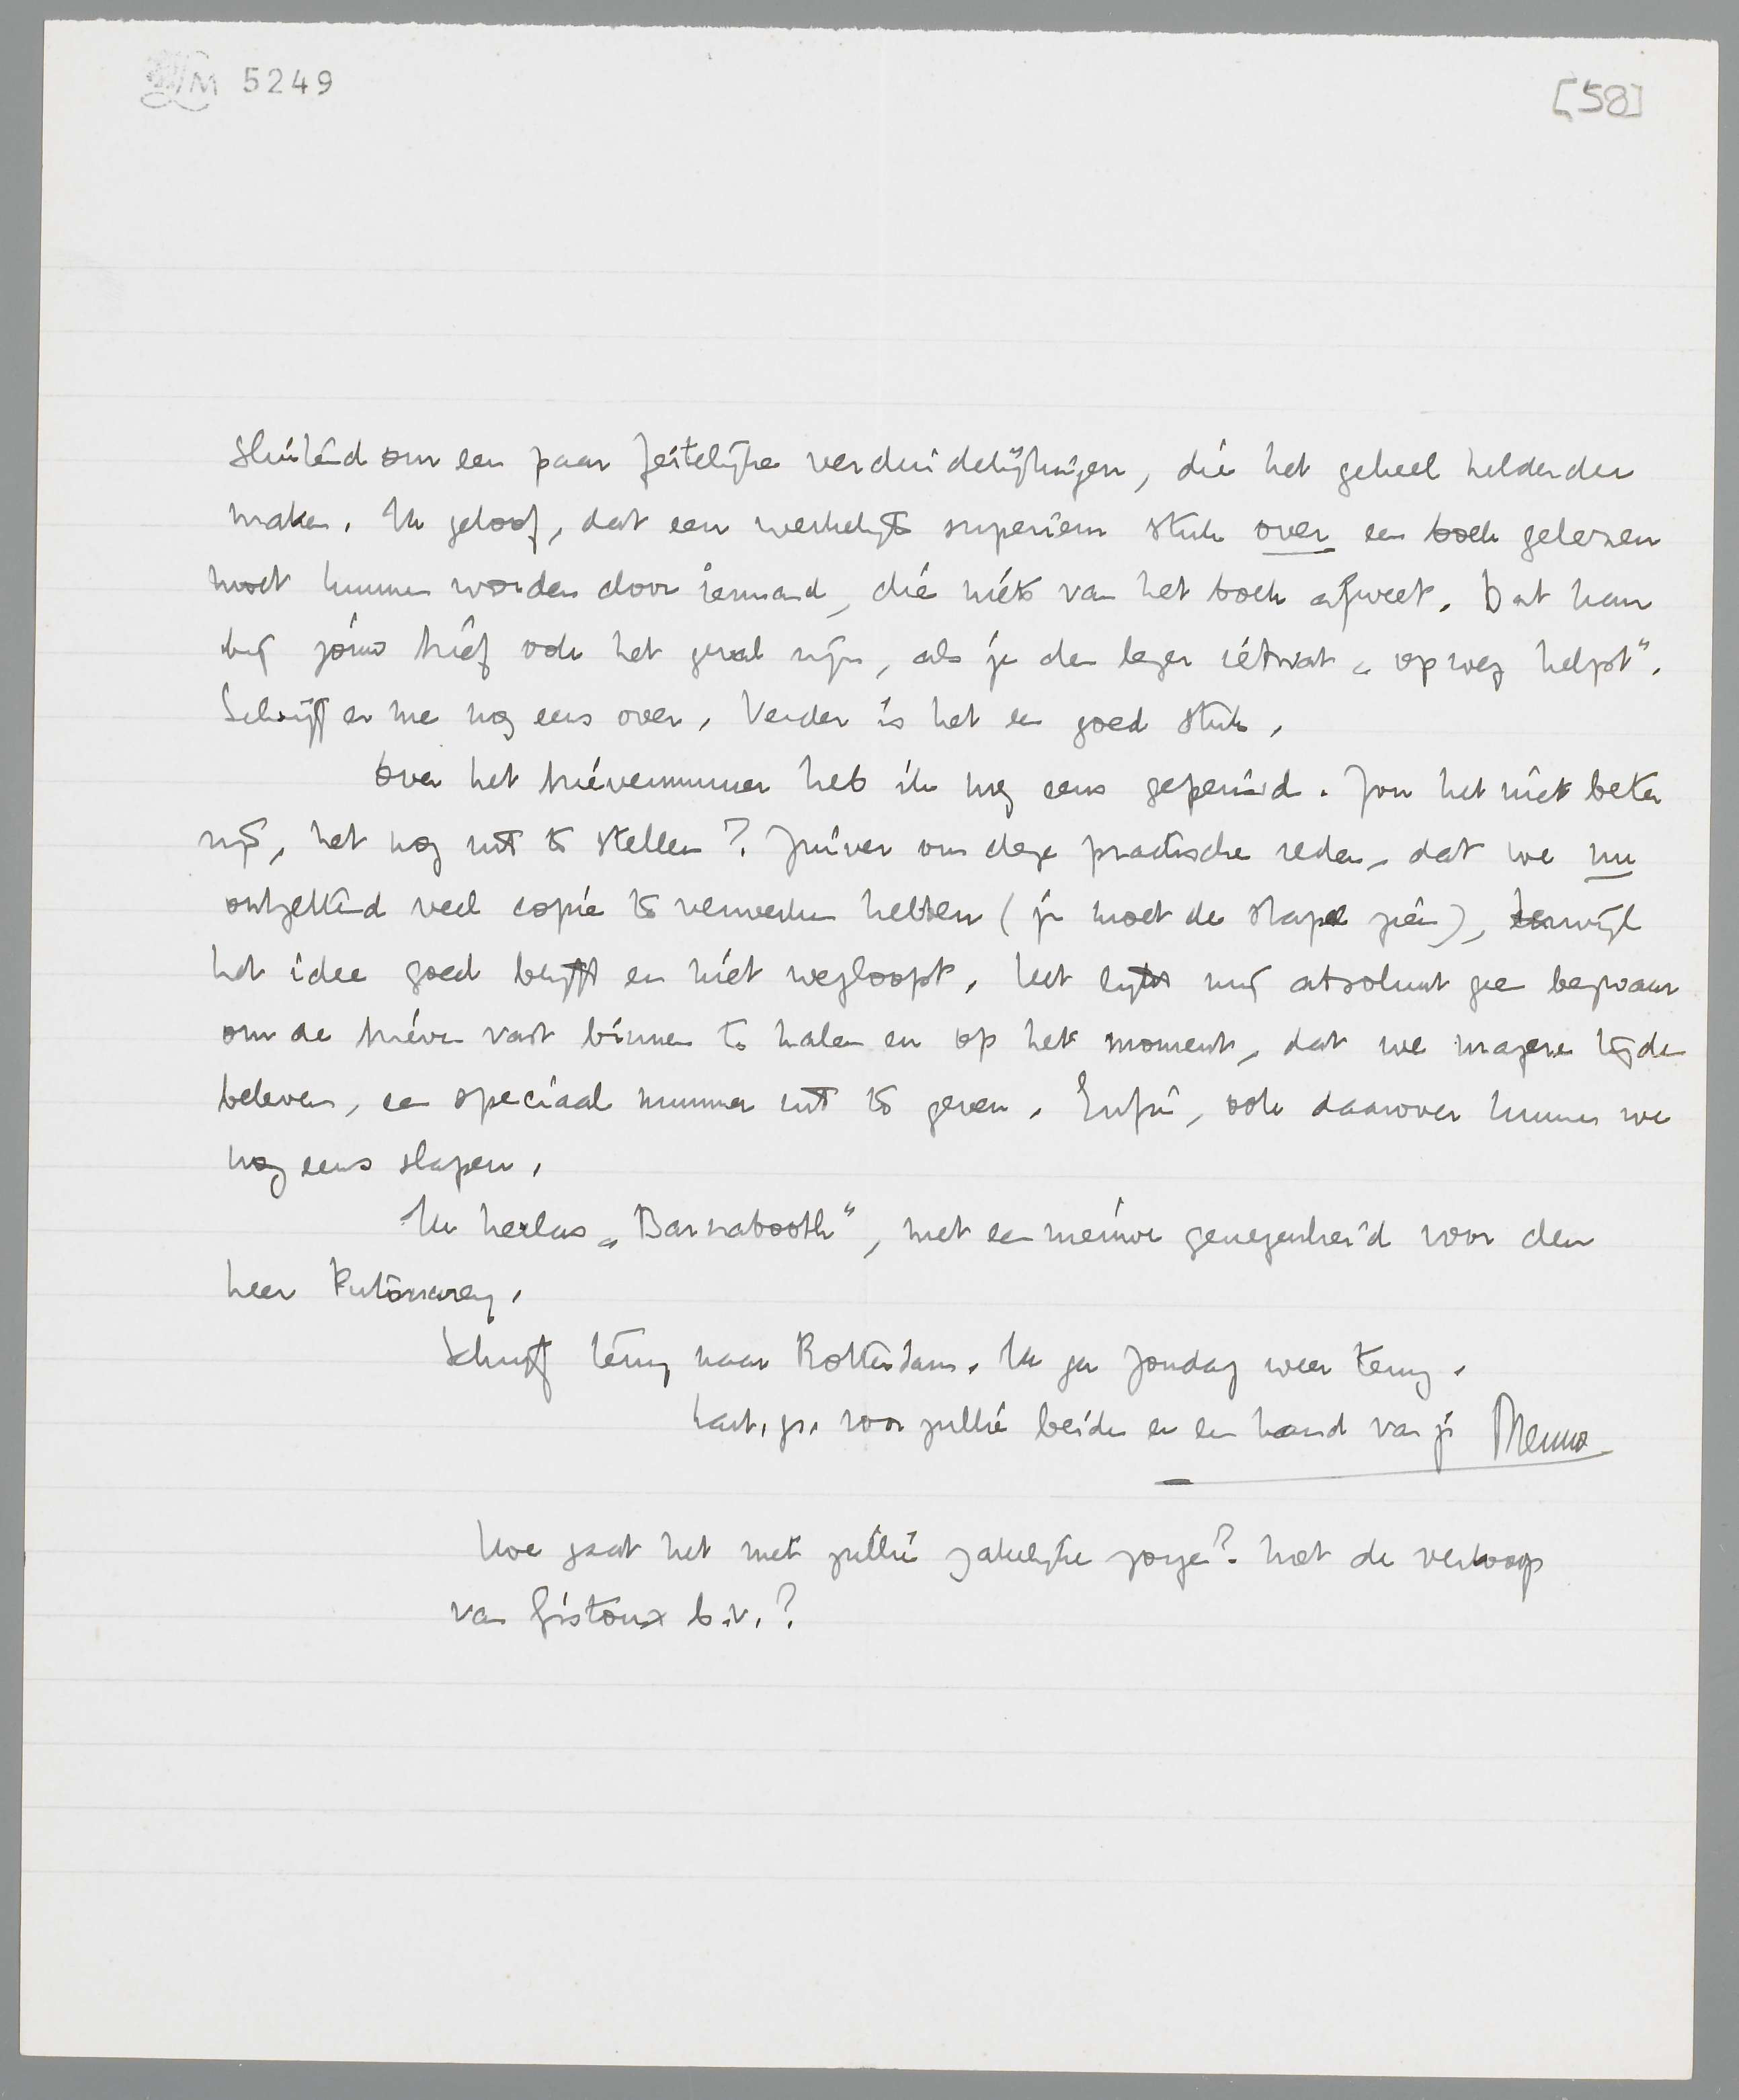 LM 5249
[58]
sluitend om een paar feitelijke verduidelijkingen, die het geheel helderder
maken. Ik geloof, dat een werkelijk superieur stuk over een boek gelezen
moet kunnen worden door iemand, die niets van het boek afweet. Dat kan
bij jouw brief ook het geval zijn, als je den lezer iétwat „op weg helpt".
Schrijf er me nog eens over. Verder is het een goed stuk.
Over het brievennummer heb ik nog eens gepeinsd. Zou het niet beter
zijn, het nog uit te stellen? Zuiver om deze practische reden, dat we nu
ontzettend veel copie te verwerken hebben (je moet de stapel zien), terwijl
het idee goed blijft en niet wegloopt. Het lijkt mij absoluut geen bezwaar
om de brieven vast binnen te halen en op het moment, dat we magere tijden
beleven, een speciaal nummer uit te geven. Enfin, ook daarover kunnen we
nog eens slapen.
Ik herlas „Barnabooth", met een nieuwe genegenheid voor den
heer Putouarey.
Schrijf terug naar Rotterdam. Ik ga Zondag weer terug.
hart. gr. voor jullie beiden en een hand van je Menno
Hoe gaat het met jullie zakelijke zorgen? Met de verkoop
van Gistoux b.v.?